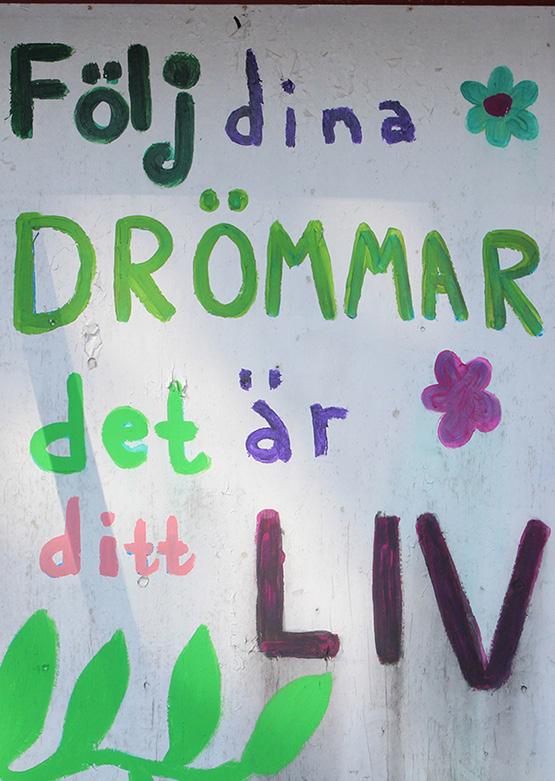 Följ dina
DRÖMMAR
det är
ditt LIV